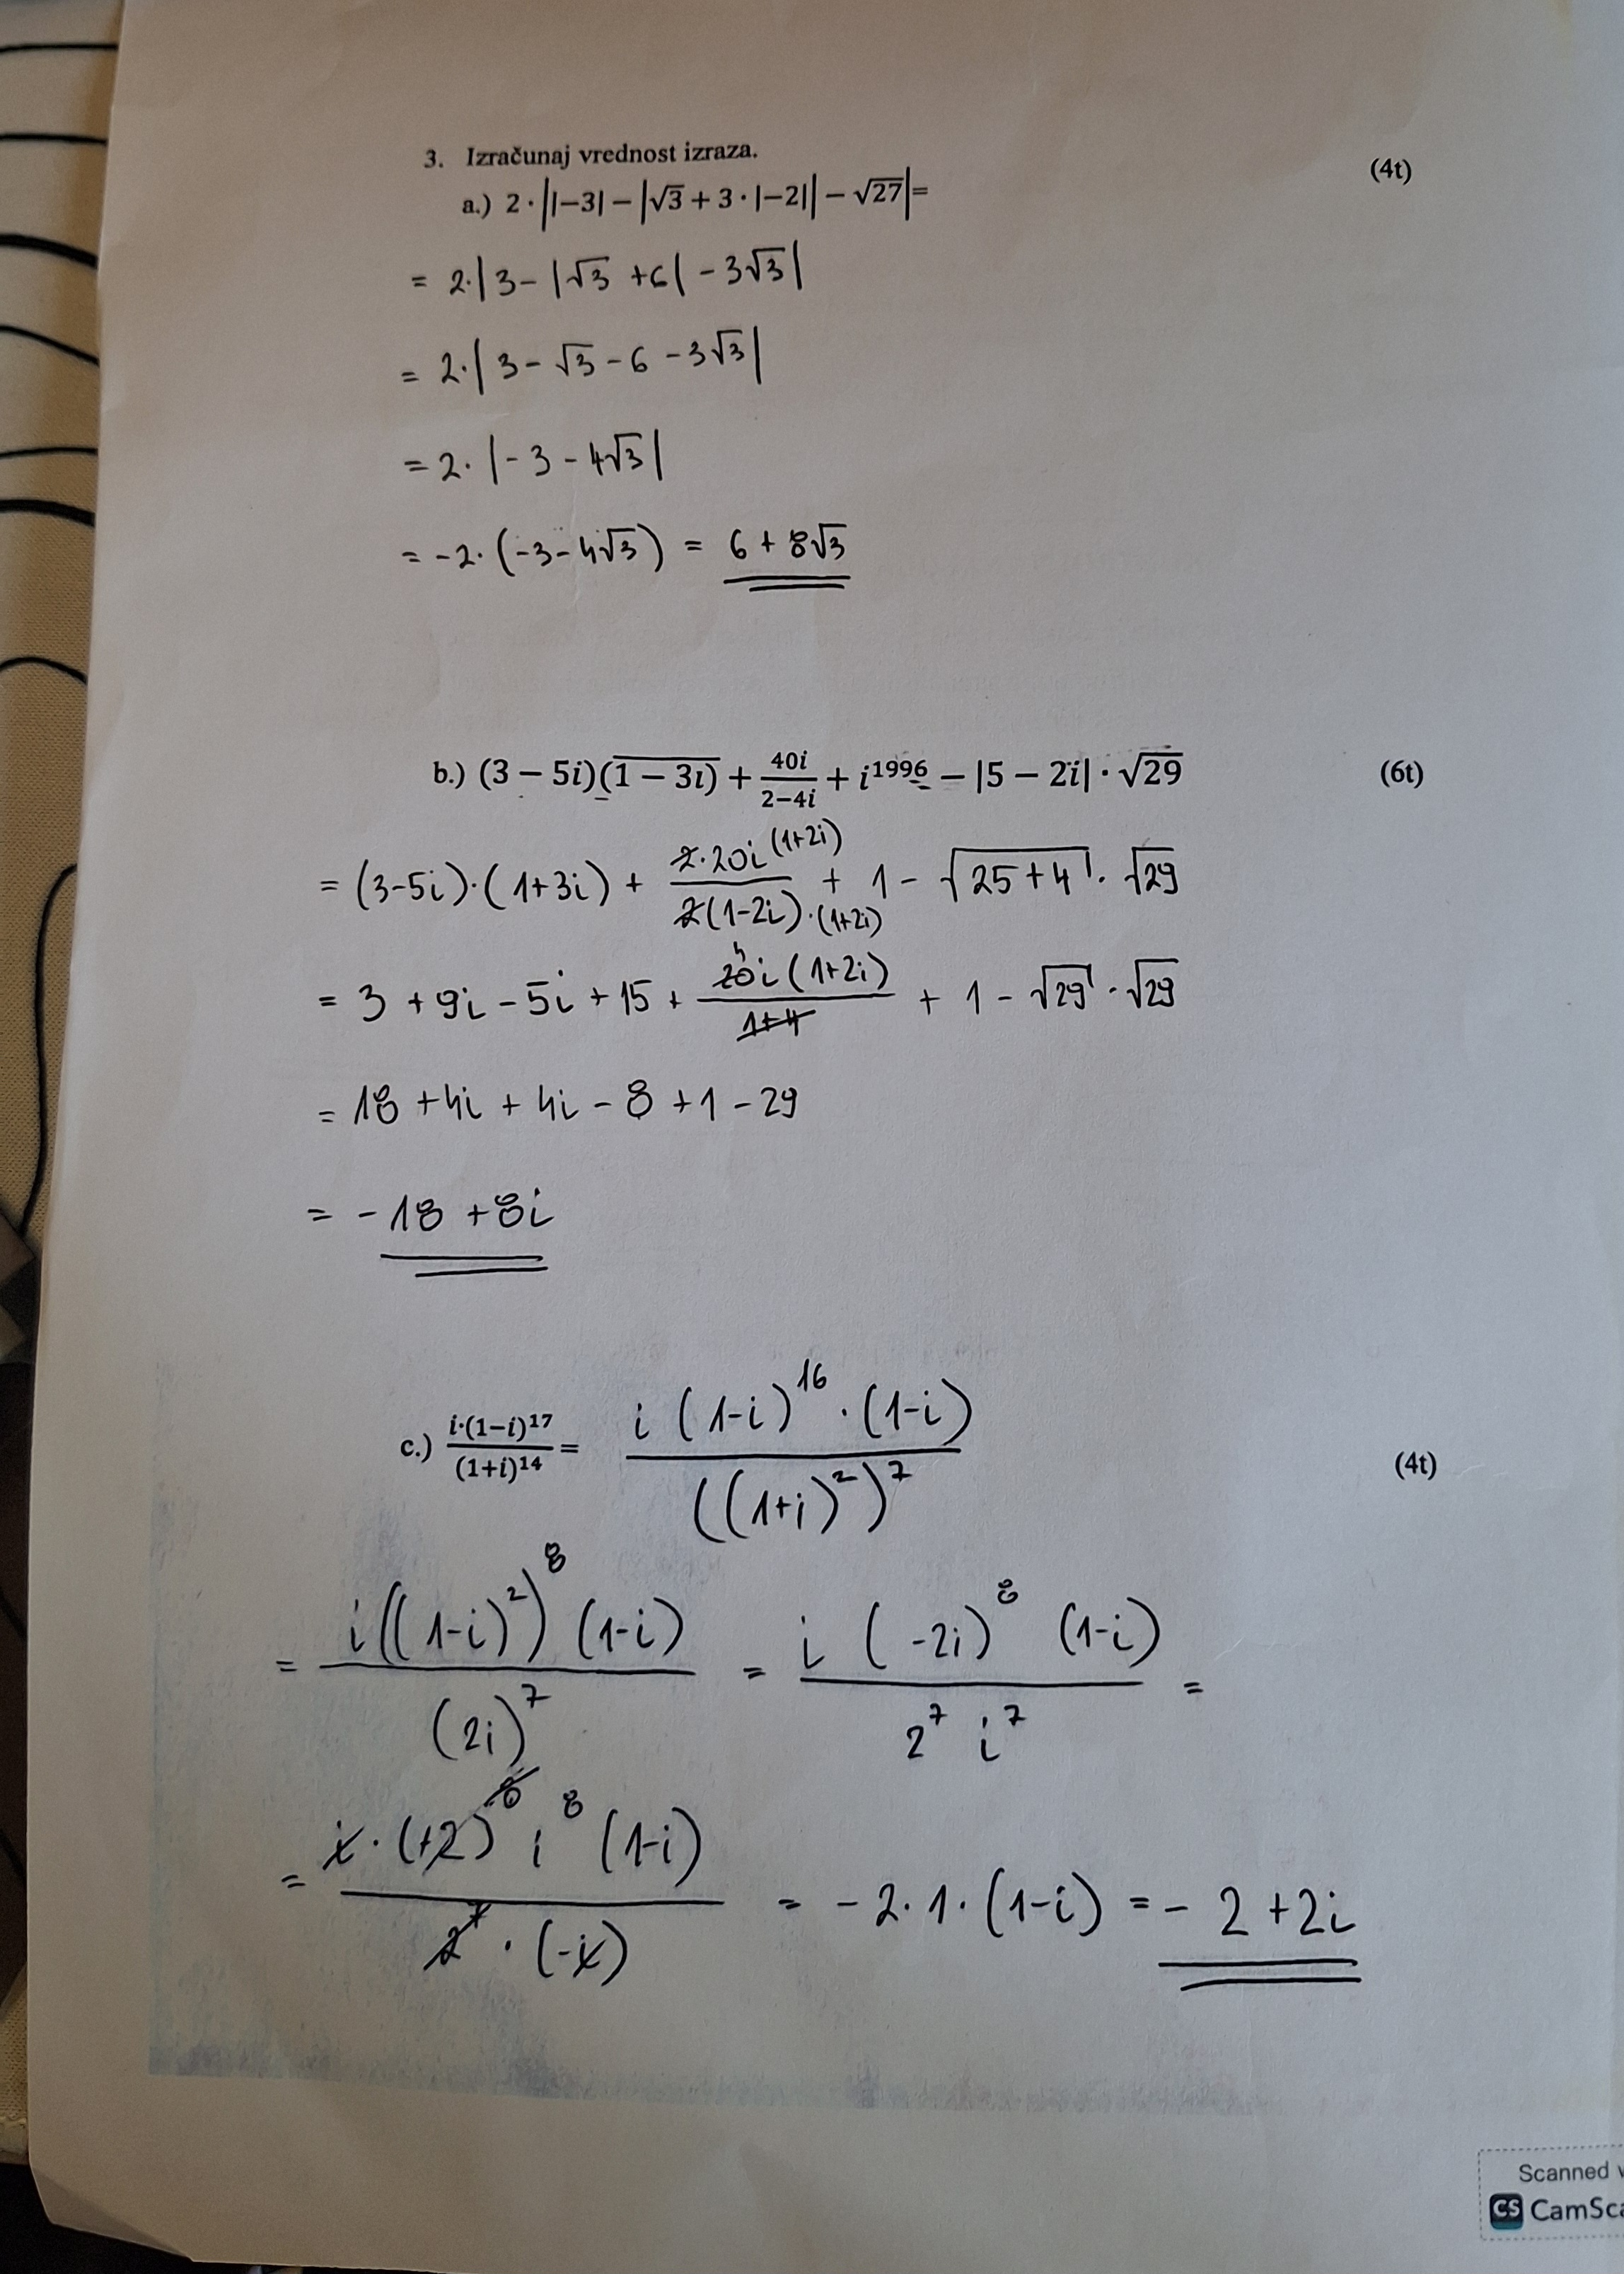 3. Izračunaj vrednost izraza.
(4t)
a.) 2 · ||−3| − |√3 + 3 · |−2|| − √27|=
= 2·|3 − |√3 + 6| − 3√3|
= 2·|3 − √3 − 6 − 3√3|
= 2·|−3 − 4√3|
= −2·(−3−4√3) = 6 + 8√3
b.) (3 − 5i)(\overline{1 − 3i}) + \frac{40i}{2−4i} + i^{1996} − |5 − 2i| · √29
(6t)
= (3−5i)·(1+3i) + \frac{2·20i (1+2i)}{2(1−2i)·(1+2i)} + 1 − √(25+4) · √29
= 3 + 9i − 5i + 15 + \frac{20^4 i (1+2i)}{1+4} + 1 − √29 · √29
= 18 + 4i + 4i − 8 + 1 − 29
= −18 + 8i
c.) \frac{i·(1−i)^{17}}{(1+i)^{14}} = \frac{i (1−i)^{16} · (1−i)}{((1+i)^2)^7}
(4t)
= \frac{i((1−i)^2)^8 (1−i)}{(2i)^7} = \frac{i (−2i)^8 (1−i)}{2^7 i^7} =
= \frac{i · (+2)^8 i^8 (1−i)}{2^7 · (−i)} = −2·1·(1−i) = −2 + 2i
Scanned
CS CamSca